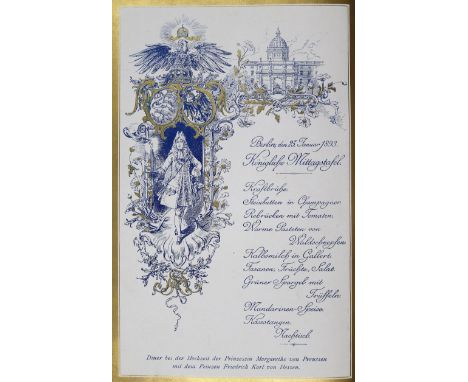 Berlin, den 25. Januar 1893.
Königliche Mittagstafel.
Kraftbrühe.
Steinbutten in Champagner
Rehrücken mit Tomaten.
Warme Pasteten von
Waldschnepfen
Kalbsmilch in Gallert.
Fasanen, Früchte, Salat.
Grüner Spargel mit
Trüffeln
Mandarinen-Speise.
Käsestangen.
Nachtisch
Diner bei der Hochzeit der Prinzessin Margarethe von Preussen
mit dem Prinzen Friedrich Karl von Hessen.